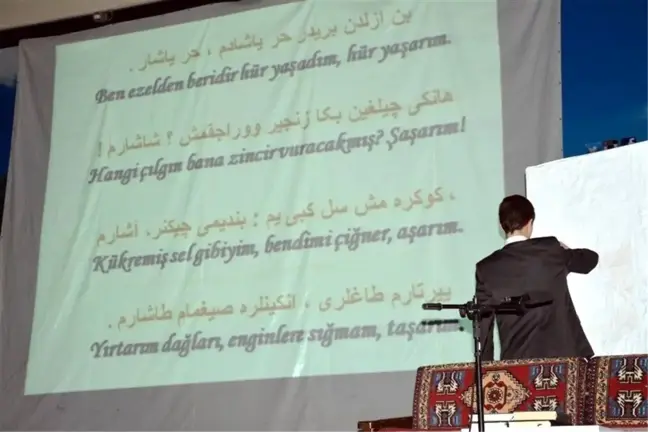 بن ازلدن بریدر حر یاشادم ، حر یاشار .
Ben ezelden beridir hür yaşadım, hür yaşarım.
هانكی چیلغین بكا زنجیر ووراجقمش ؟ شاشارم !
Hangi çılgın bana zincir vuracakmış? Şaşarım!
كوكره مش سل كبی یم : بندیمی چیكنر، آشارم ،
Kükremiş sel gibiyim, bendimi çiğner, aşarım.
ییرتارم طاغلری ، انكینلره صیغمام طاشارم .
Yırtarım dağları, enginlere sığmam, taşarım.